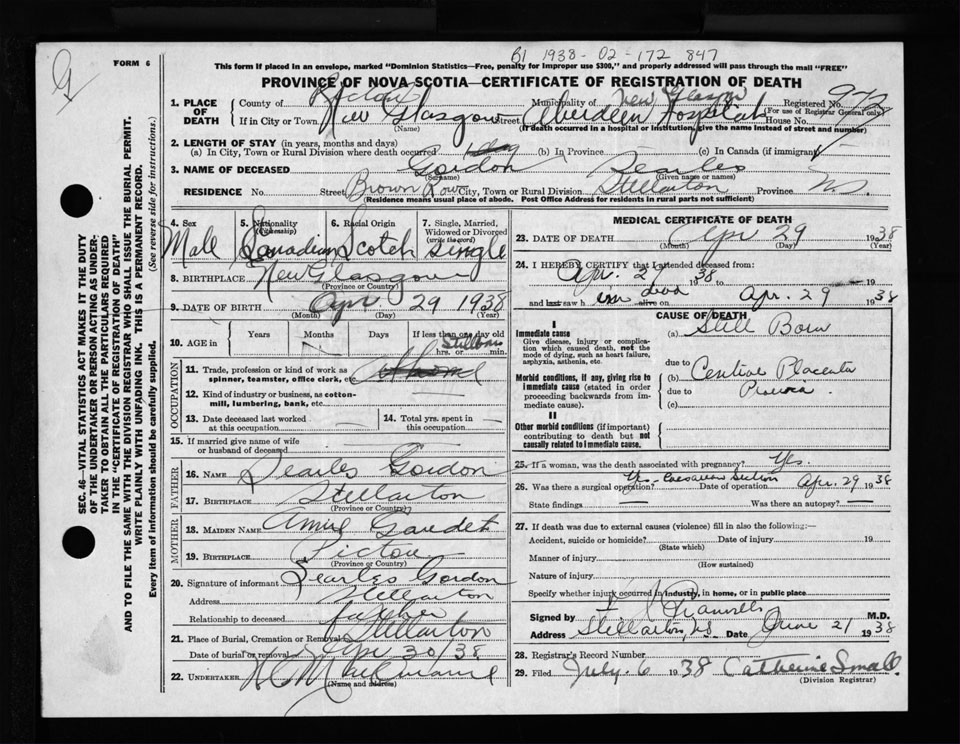 B1 1938 - 02 - 172 847
G
FORM 6
This form if placed in an envelope, marked "Dominion Statistics—Free, penalty for improper use $300," and properly addressed will pass through the mail "FREE"
PROVINCE OF NOVA SCOTIA—CERTIFICATE OF REGISTRATION OF DEATH
SEC. 46—VITAL STATISTICS ACT MAKES IT THE DUTY OF THE UNDERTAKER OR PERSON ACTING AS UNDERTAKER TO OBTAIN ALL THE PARTICULARS REQUIRED IN THE "CERTIFICATE OF REGISTRATION OF DEATH"
AND TO FILE THE SAME WITH THE DIVISION REGISTRAR WHO SHALL ISSUE THE BURIAL PERMIT.
WRITE PLAINLY WITH UNFADING INK. THIS IS A PERMANENT RECORD.
Every item of information should be carefully supplied. (See reverse side for instructions.)
1. PLACE OF DEATH County of Pictou Municipality of New Glasgow Registered No.
(For use of Registrar General only)
If in City or Town New Glasgow Street Aberdeen Hospital House No.
(Name) (If death occurred in a hospital or institution, give the name instead of street and number)
2. LENGTH OF STAY (in years, months and days)
(a) In City, Town or Rural Division where death occurred (b) In Province (c) In Canada (if immigrant)
3. NAME OF DECEASED Gordon Searles
(Surname) (Given name or names)
RESIDENCE No. Street Brown Row City, Town or Rural Division Stellarton Province N.S.
(Residence means usual place of abode. Post Office Address for residents in rural parts not sufficient)
4. Sex Male
5. Nationality (Citizenship) Canadian
6. Racial Origin Scotch
7. Single, Married, Widowed or Divorced (write the word) Single
8. BIRTHPLACE New Glasgow
(Province or Country)
9. DATE OF BIRTH Apr 29 1938
(Month) (Day) (Year)
10. AGE in Years Months Days If less than one day old
Stillborn hrs. or min.
OCCUPATION
11. Trade, profession or kind of work as spinner, teamster, office clerk, etc. at home
12. Kind of industry or business, as cotton-mill, lumbering, bank, etc.
13. Date deceased last worked at this occupation
14. Total yrs. spent in this occupation
15. If married give name of wife or husband of deceased
FATHER
16. NAME Searles Gordon
17. BIRTHPLACE Stellarton
(Province or Country)
MOTHER
18. MAIDEN NAME Gaudet
19. BIRTHPLACE Pictou
(Province or Country)
20. Signature of informant Searles Gordon
Address Stellarton
Relationship to deceased father
21. Place of Burial, Cremation or Removal Stellarton
Date of burial or removal Apr 30/38
22. UNDERTAKER
(Name and address)
MEDICAL CERTIFICATE OF DEATH
23. DATE OF DEATH Apr 29 1938
(Month) (Day) (Year)
24. I HEREBY CERTIFY that I attended deceased from:
Apr. 2 1938 to 19
and last saw h alive on Apr. 29 1938
CAUSE OF DEATH
I
Immediate cause
Give disease, injury or complication which caused death, not the mode of dying, such as heart failure, asphyxia, asthenia, etc.
(a) Still Born
due to
Morbid conditions, if any, giving rise to immediate cause (stated in order proceeding backwards from immediate cause).
(b) Central Placenta
due to Previa
(c)
II
Other morbid conditions (if important) contributing to death but not causally related to immediate cause.
25. If a woman, was the death associated with pregnancy? Yes.
26. Was there a surgical operation? Yes - Caesarean Section Date of operation Apr. 29 1938
State findings Was there an autopsy?
27. If death was due to external causes (violence) fill in also the following:—
Accident, suicide or homicide? Date of injury 19
(State which)
Manner of injury
(How sustained)
Nature of injury
Specify whether injury occurred in industry, in home, or in public place
Signed by M.D.
Address Stellarton, N.S. Date June 21 1938
28. Registrar's Record Number
29. Filed July. 6 1938 Catherine Small.
(Division Registrar)